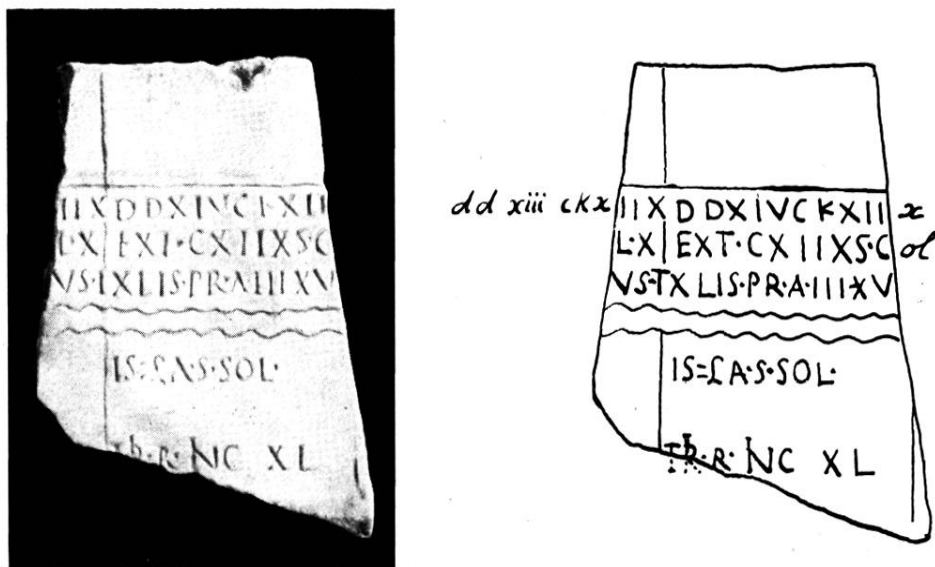 IIX D DXIVCKXII
L·X EXT·CXIIXS·C
VS·TXLIS·PR·A·III·XV
IS=£A·S·SOL·
R· NC XL
dd xiii ckx IIX D DXIVCKXII x
L·X EXT·CXIIXS·C ol
VS·TXLIS·PR·A·III·XV
IS=£A·S·SOL·
R· NC XL